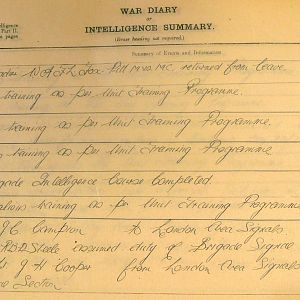 WAR DIARY
OR
INTELLIGENCE SUMMARY.
(Erase heading not required).
Intelligence
Part II.
pages
Summary of Events and Information
returned from leave
Training as per Unit Training Programme.
Training as per Unit Training Programme.
Training as per Unit Training Programme
Brigade Intelligence Course Completed.
training as per Unit Training Programme
Campion to London Area Signals
Steele assumed duty of Brigade Signal
J H Cooper from London Area Signals
Section